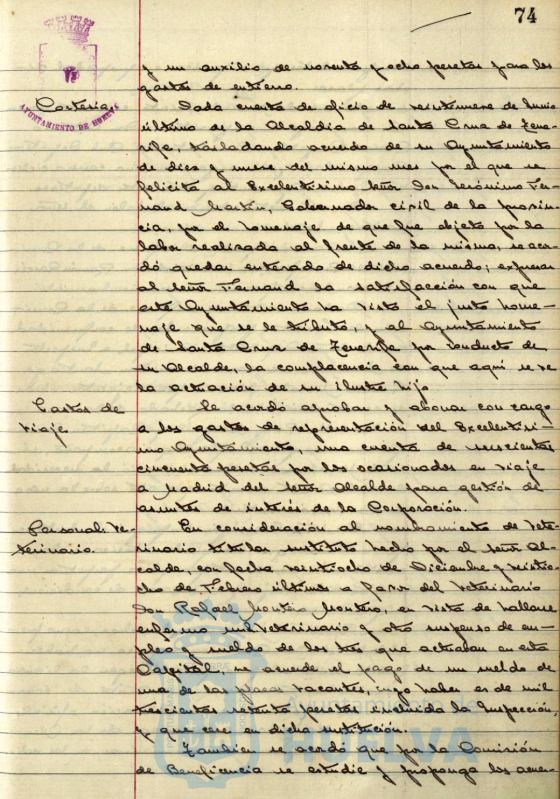 74
AYUNTAMIENTO DE HUELVA
y un auxilio de noventa y ocho pesetas para los
gastos de entierro.
Cortesia
Dada cuenta de oficio de veintinueve de Junio
último de la Alcaldía de Santa Cruz de Tene-
rife, trasladando acuerdo de su Ayuntamiento
de diez y nueve del mismo mes por el que se
felicita al Excelentísimo Señor Don Jerónimo Fer-
naud Martín, Gobernador civil de la provin-
cia, por el homenaje de que fue objeto por la
labor realizada al frente de la misma, se acor-
dó quedar enterado de dicho acuerdo; expresar
al Señor Fernaud la satisfacción con que
este Ayuntamiento ha visto el justo home-
naje que se le tributó, y al Ayuntamiento
de Santa Cruz de Tenerife por conducto de
su Alcalde, la complacencia con que aquí se ve
la actuación de su ilustre hijo
Gastos de
viaje
Se acordó aprobar y abonar con cargo
a los gastos de representación del Excelentísi-
mo Ayuntamiento, una cuenta de seiscientas
cincuenta pesetas por los ocasionados en viaje
a Madrid del Señor Alcalde para gestión de
asuntos de interés de la Corporación.
Personal: Ve-
terinario.
En consideración al nombramiento de Vete-
rinario titular sustituto hecho por el Señor Al-
calde, con fecha veintiocho de Diciembre y
de Febrero últimos a favor del Veterinario
Don Rafael Montero Montero, en vista de hallarse
enfermo un Veterinario y otro suspenso de em-
pleo y sueldo de los tres que actuaban en esta
Capital, se acuerde el pago de un sueldo de
una de las plazas vacantes, cuyo haber es de mil
trescientas pesetas incluida la Inspección,
y que cese en dicha sustitución.
Tambien se acordó que por la Comisión
de Beneficencia se estudie y proponga los acuer-
HUELVA